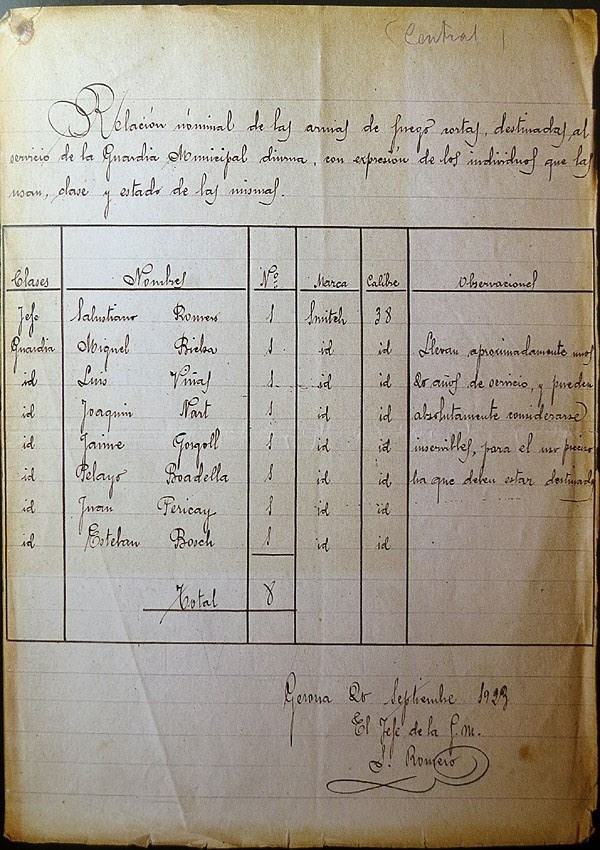 Central
Relación nominal de las armas de fuego cortas, destinadas al
servicio de la Guardia Municipal diurna, con expresión de los individuos que las
usan, clase y estado de las mismas.
Clases Nombres Nº Marca Calibre Observaciones
Jefe Salustiano Romero 1 Smitch 38
Guardia Miquel Bielsa 1 id id Llevan aproximadamente unos
id Luis Viñas 1 id id 20 años de servicio, y pueden
id Joaquin Nart 1 id id absolutamente considerarse
id Jaime Gorgoll 1 id id inservibles, para el uso preciso
id Pelayo Boadella 1 id id ha que deben estar destinadas
id Juan Pericay 1 id id
id Esteban Bosch 1 id id
Total 8
Gerona 20 Septiembre 1923
El Jefe de la G.M.
S. Romero